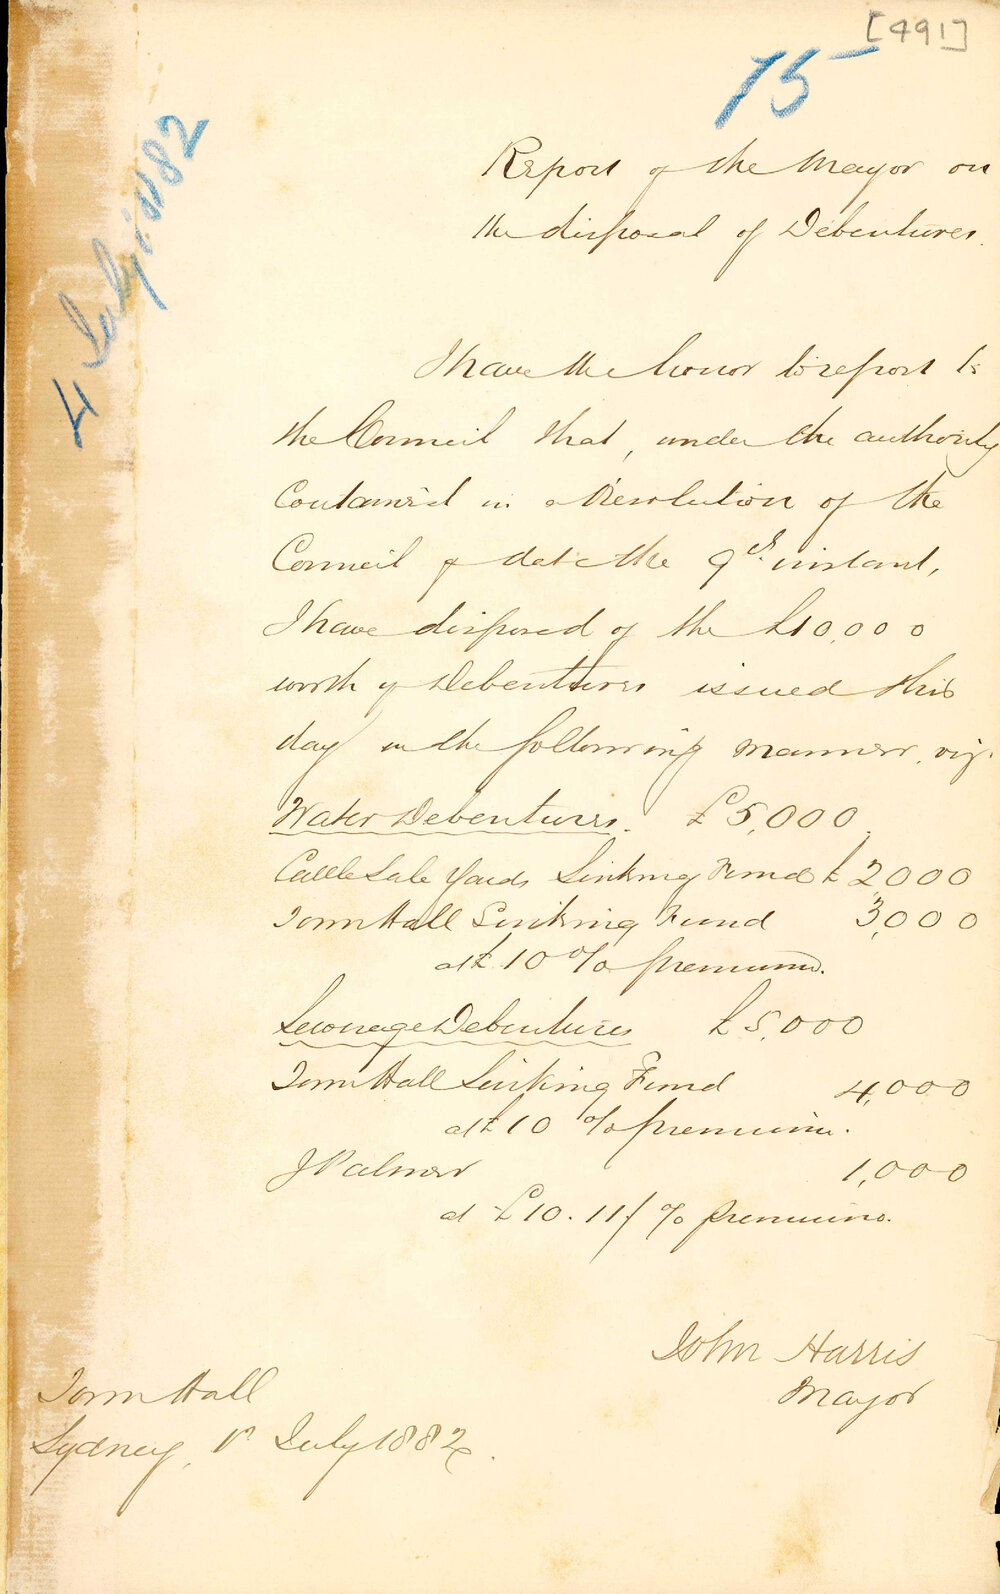 [491]
75
4 July 1882
Report of the Mayor on
the disposal of Debentures.
I have the honor to report to
the Council that, under the authority
contained in a Resolution of the
Council of date the 9th instant,
I have disposed of the £10,000
worth of Debentures issued this
day in the following manner, viz.
Water Debentures. £5,000.
Cattle Sale Yards Sinking Fund £2,000
Town Hall Sinking Fund 3,000
at £10 % premium.
Sewerage Debentures £5,000
Town Hall Sinking Fund 4,000
at £10 % premium.
J Palmer 1,000
at £10.11/ % premium.
John Harris
Mayor
Town Hall
Sydney, 1st July 1882.